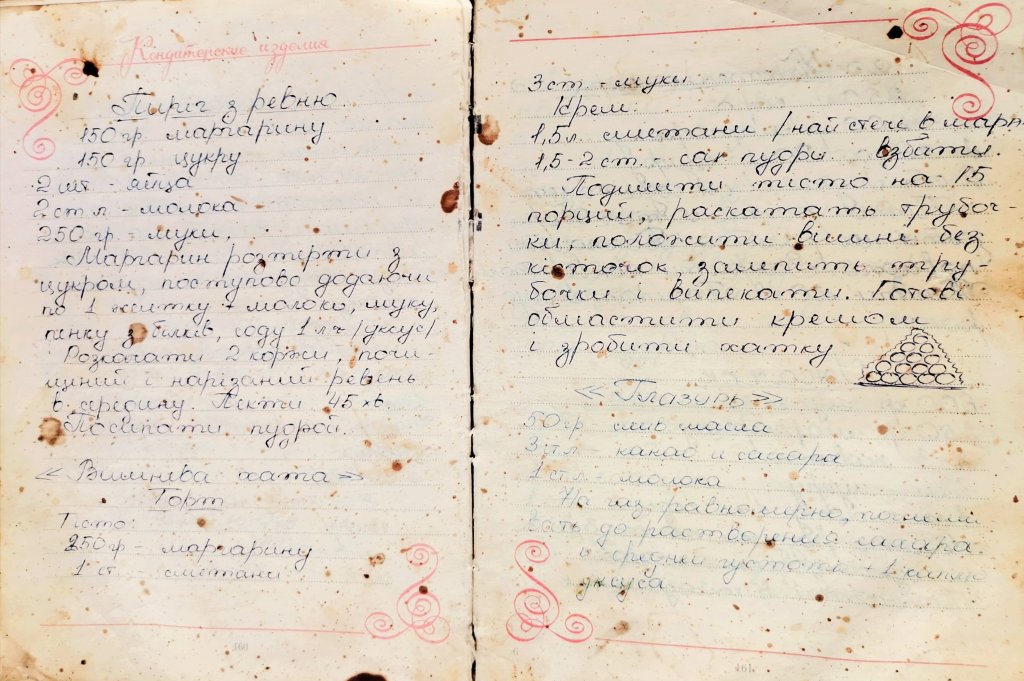 Кондитерские изделия
Пиріг з ревню.
150 гр. маргарину
150 гр. цукру
2 шт - яйца
2 ст л - молока
250 гр - муки.
Маргарин розтерти з
цукром, поступово додаючи
по 1 житку + молоко, муку,
пінку з білків, соду 1 л.ч /уксус/
Розкачати 2 коржи, почи-
щений і нарізаний ревень
в середину. Пекти 45 хв.
Посипати пудрой.
<< Вишнева хата >>
Торт
Тісто:
250 гр - маргарину
1 ст. - сметани
160
3 ст. - муки
Крем:
1,5 л. сметани /най стече в марл.
1,5-2 ст. - сах пудри. взбити.
Поділити тісто на 15
порций, раскатать трубоч-
ки, положити вишні без
кісточок, заліпить тру-
бочки і випекати. Готові
обмастити кремом
і зробити хатку
<< Глазурь >>
50 гр - слив масла
3 ст л - какао и сахара
1 ст л - молока
На газ равномерно,
до растворения сахара.
и средней густоты + 1 каплю
уксуса
161